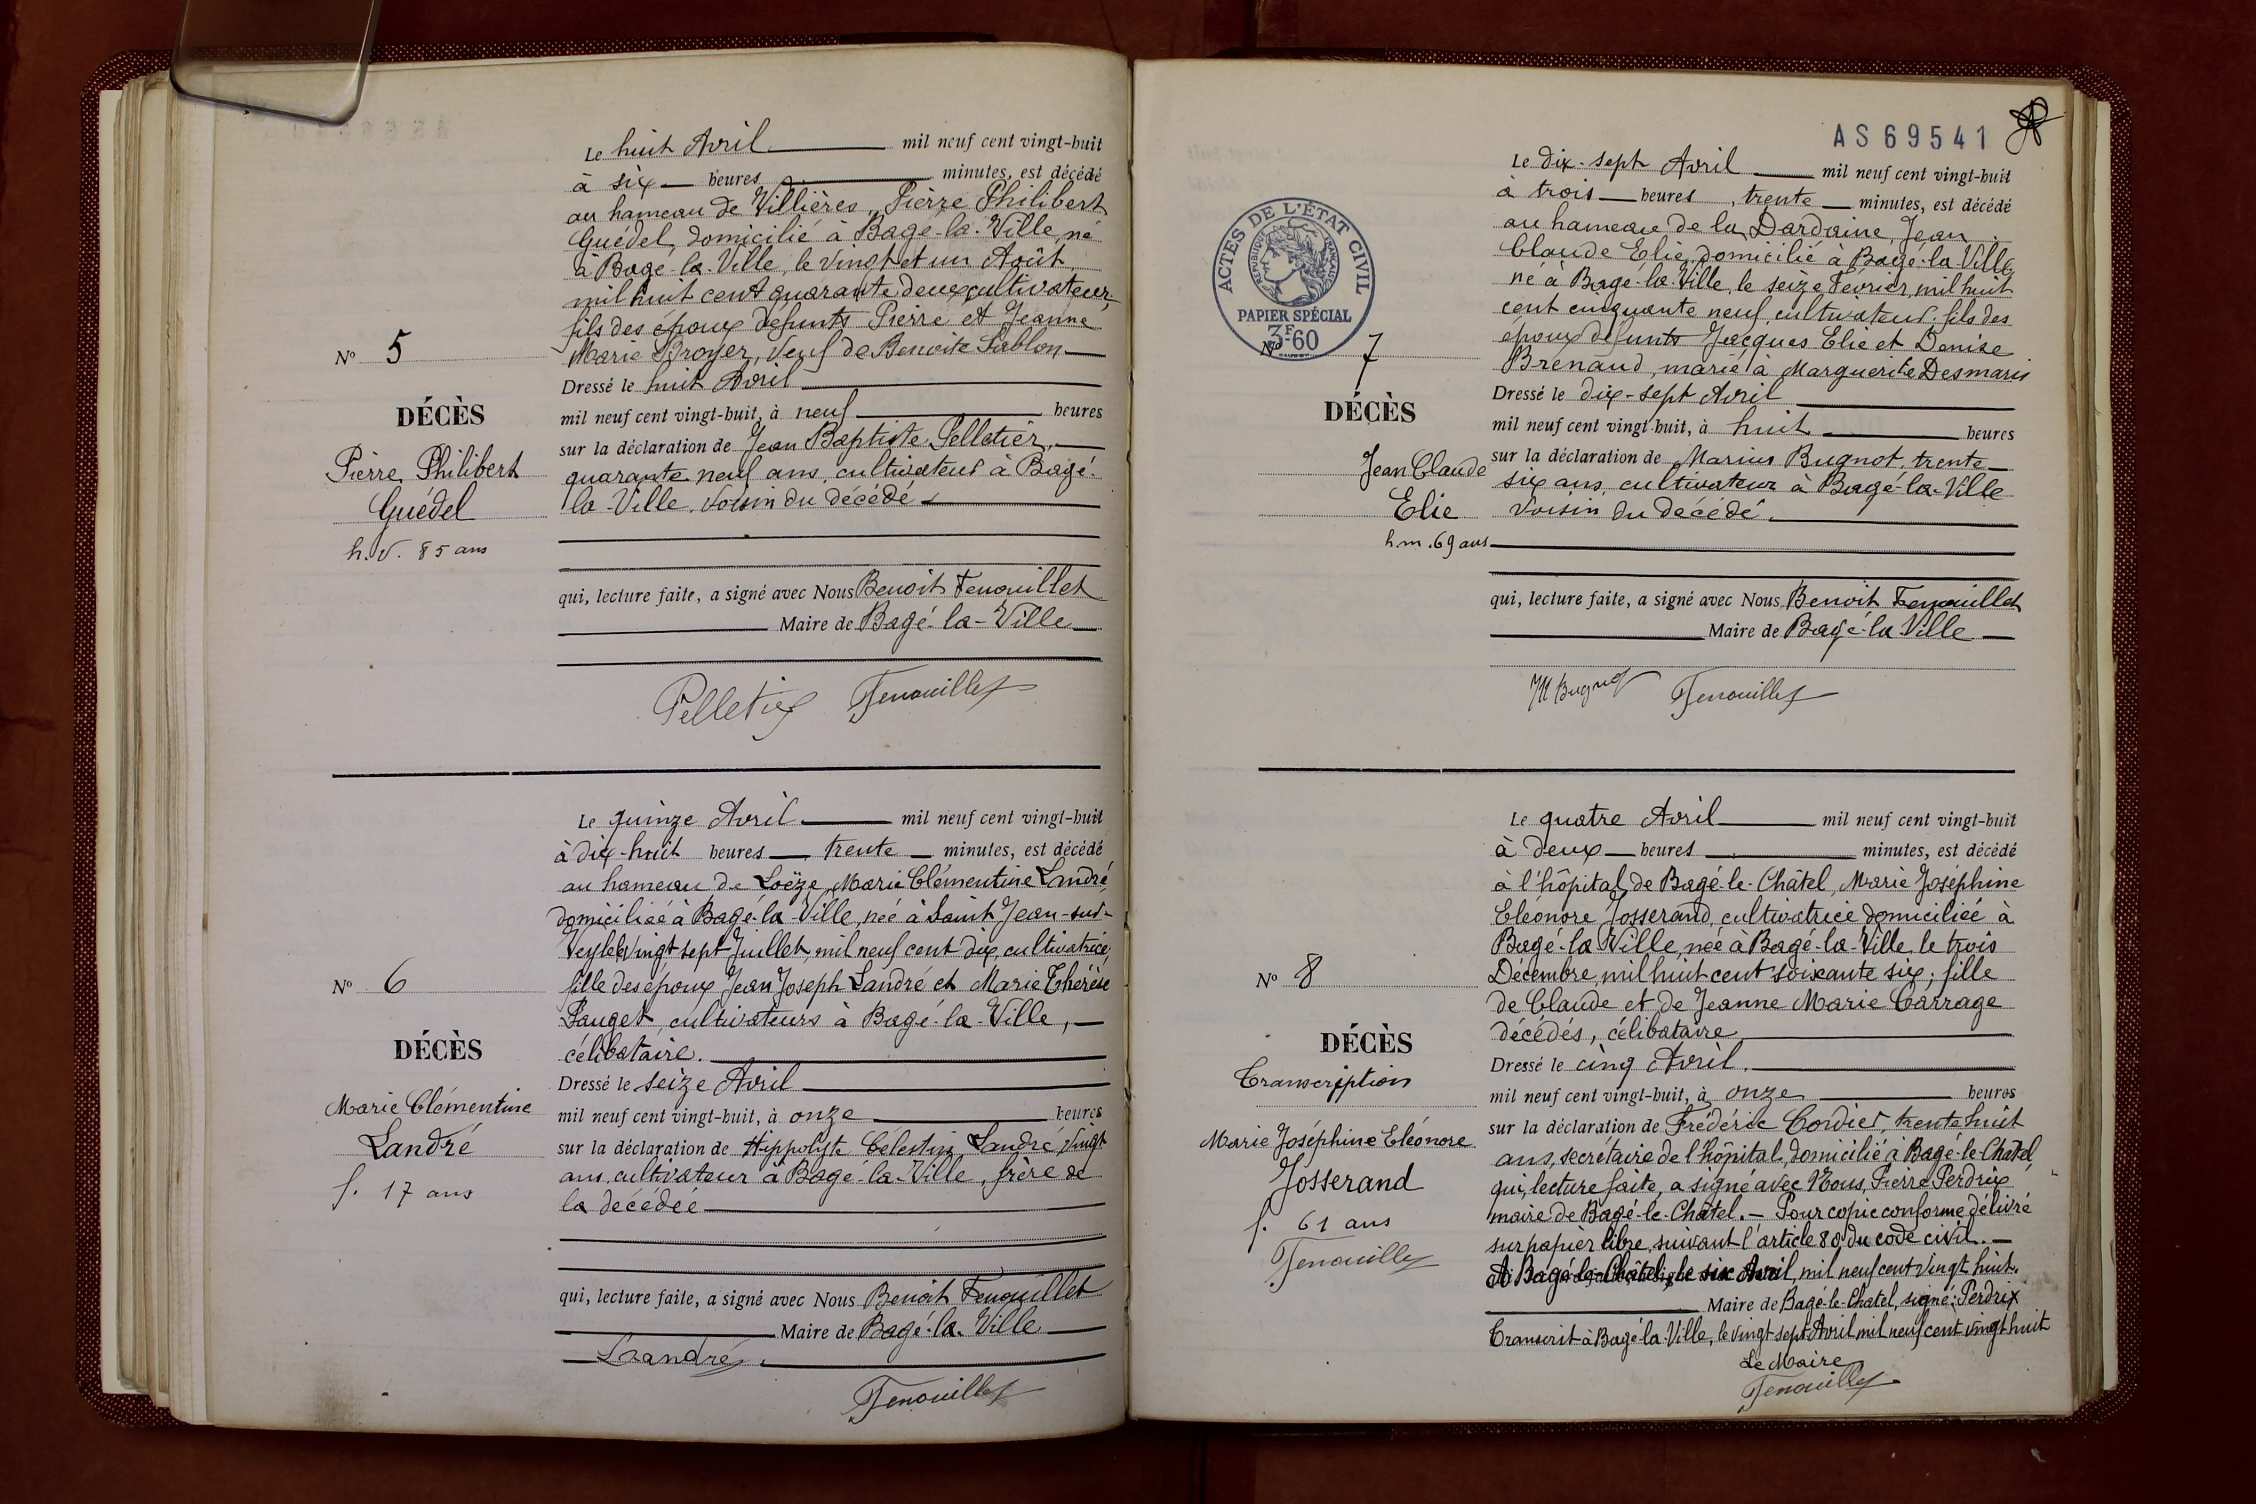 Le huit Avril mil neuf cent vingt-huit
à six heures minutes, est décédé
au hameau de Villières, Pierre Philibert
Guédel, domicilié à Bagé-la-Ville, né
à Bagé-la-Ville, le vingt et un Août
mil huit cent quarante deux, cultivateur,
fils des époux défunts Pierre et Jeanne
Marie Broyer, veuf de Benoite Sablon
Dressé le huit Avril
mil neuf cent vingt-huit, à neuf heures
sur la déclaration de Jean Baptiste Pelletier,
quarante neuf ans, cultivateur à Bagé-
la-Ville, voisin du décédé
qui, lecture faite, a signé avec Nous Benoit Fenouillet
Maire de Bagé-la-Ville
Pelletier Fenouillet
No 5
DÉCÈS
Pierre Philibert
Guédel
h.v. 85 ans
Le quinze Avril mil neuf cent vingt-huit
à dix-huit heures trente minutes, est décédé
au hameau de Loëze, Marie Clémentine Landré,
domiciliée à Bagé-la-Ville, née à Saint Jean-sur-
Veyle le vingt sept Juillet mil neuf cent dix, cultivatrice,
fille des époux Jean Joseph Landré et Marie Thérèse
Pauget, cultivateurs à Bagé-la-Ville,
célibataire.
Dressé le seize Avril
mil neuf cent vingt-huit, à onze heures
sur la déclaration de Hippolyte Célestin Landré, vingt
ans, cultivateur à Bagé-la-Ville, frère de
la décédée
qui, lecture faite, a signé avec Nous Benoit Fenouillet
Maire de Bagé-la-Ville
Landré
Fenouillet
No 6
DÉCÈS
Marie Clémentine
Landré
f. 17 ans
AS 69541
ACTES DE L'ÉTAT CIVIL
RÉPUBLIQUE FRANÇAISE
PAPIER SPÉCIAL
3F60
Le dix-sept Avril mil neuf cent vingt-huit
à trois heures, trente minutes, est décédé
au hameau de la Dardaine, Jean
Claude Elie, domicilié à Bagé-la-Ville,
né à Bagé-la-Ville, le seize Février mil huit
cent cinquante neuf, cultivateur, fils des
époux défunts Jacques Elie et Denise
Brenaud, marié à Marguerite Desmaris
Dressé le dix-sept Avril
mil neuf cent vingt-huit, à huit heures
sur la déclaration de Marius Bugnot, trente
six ans, cultivateur à Bagé-la-Ville
voisin du décédé.
qui, lecture faite, a signé avec Nous Benoit Fenouillet
Maire de Bagé-la-Ville
M Bugnot Fenouillet
No 7
DÉCÈS
Jean Claude
Elie
h.m. 69 ans
Le quatre Avril mil neuf cent vingt-huit
à deux heures minutes, est décédé
à l'hôpital de Bagé-le-Châtel, Marie Joséphine
Eléonore Josserand, cultivatrice domiciliée à
Bagé-la-Ville, née à Bagé-la-Ville le trois
Décembre mil huit cent soixante six; fille
de Claude et de Jeanne Marie Carrage
décédés, célibataire
Dressé le cinq Avril.
mil neuf cent vingt-huit, à onze heures
sur la déclaration de Frédéric Cordier, trente huit
ans, secrétaire de l'hôpital, domicilié à Bagé-le-Châtel,
qui, lecture faite, a signé avec Nous, Pierre Perdrix
maire de Bagé-le-Châtel. – Pour copie conforme délivré
sur papier libre, suivant l'article 80 du code civil. –
A Bagé-le-Châtel, le six Avril, mil neuf cent vingt huit.
Maire de Bagé-le-Châtel, signé: Perdrix
Transcrit à Bagé-la-Ville, le vingt sept Avril mil neuf cent vingt huit
Le Maire
Fenouillet
No 8
DÉCÈS
Transcription
Marie Joséphine Eléonore
Josserand
f. 61 ans
Fenouillet